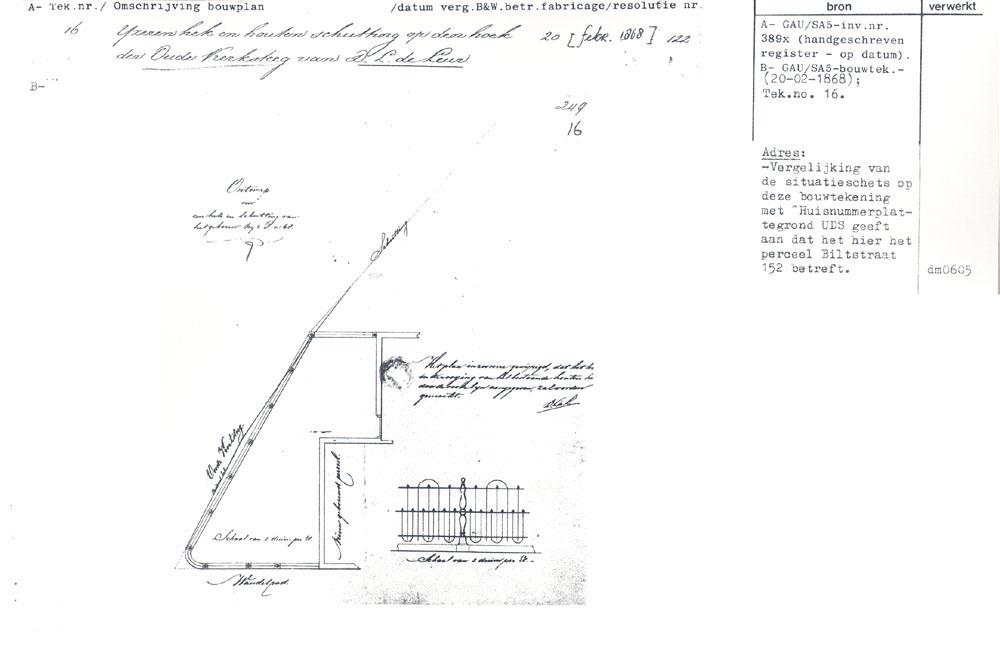 A- Tek.nr./ Omschrijving bouwplan /datum verg.B&W.betr.fabricage/resolutie nr.
bron verwerkt
16 Yzeren hek en houten schutting op den hoek 20 [febr. 1868] 122
den Oude Kerksteeg van D. L. de Leur
B-
249
16
A- GAU/SA5-inv.nr.
389x (handgeschreven
register - op datum).
B- GAU/SA5-bouwtek.-
(20-02-1868);
Tek.no. 16.
Adres:
-Vergelijking van
de situatieschets op
deze bouwtekening
met "Huisnummerplat-
tegrond UDS geeft
aan dat het hier het
perceel Biltstraat
152 betreft.
dm0605
Ontwerp
voor
een hek en schutting van
het gebouw
Schutting
Het plan in zooverre gewijzigd, dat het
van het bestaande houten
aangegeven, zal worden
gemaakt.
Oude Kerksteeg
Nieuw gebouwd perceel
Schaal van 2 duim per El.
Schaal van 2 duim per El.
Wandelpad.